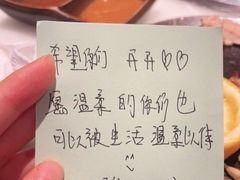 希望你们 开开♡♡
愿温柔的你们也
可以被生活温柔以待